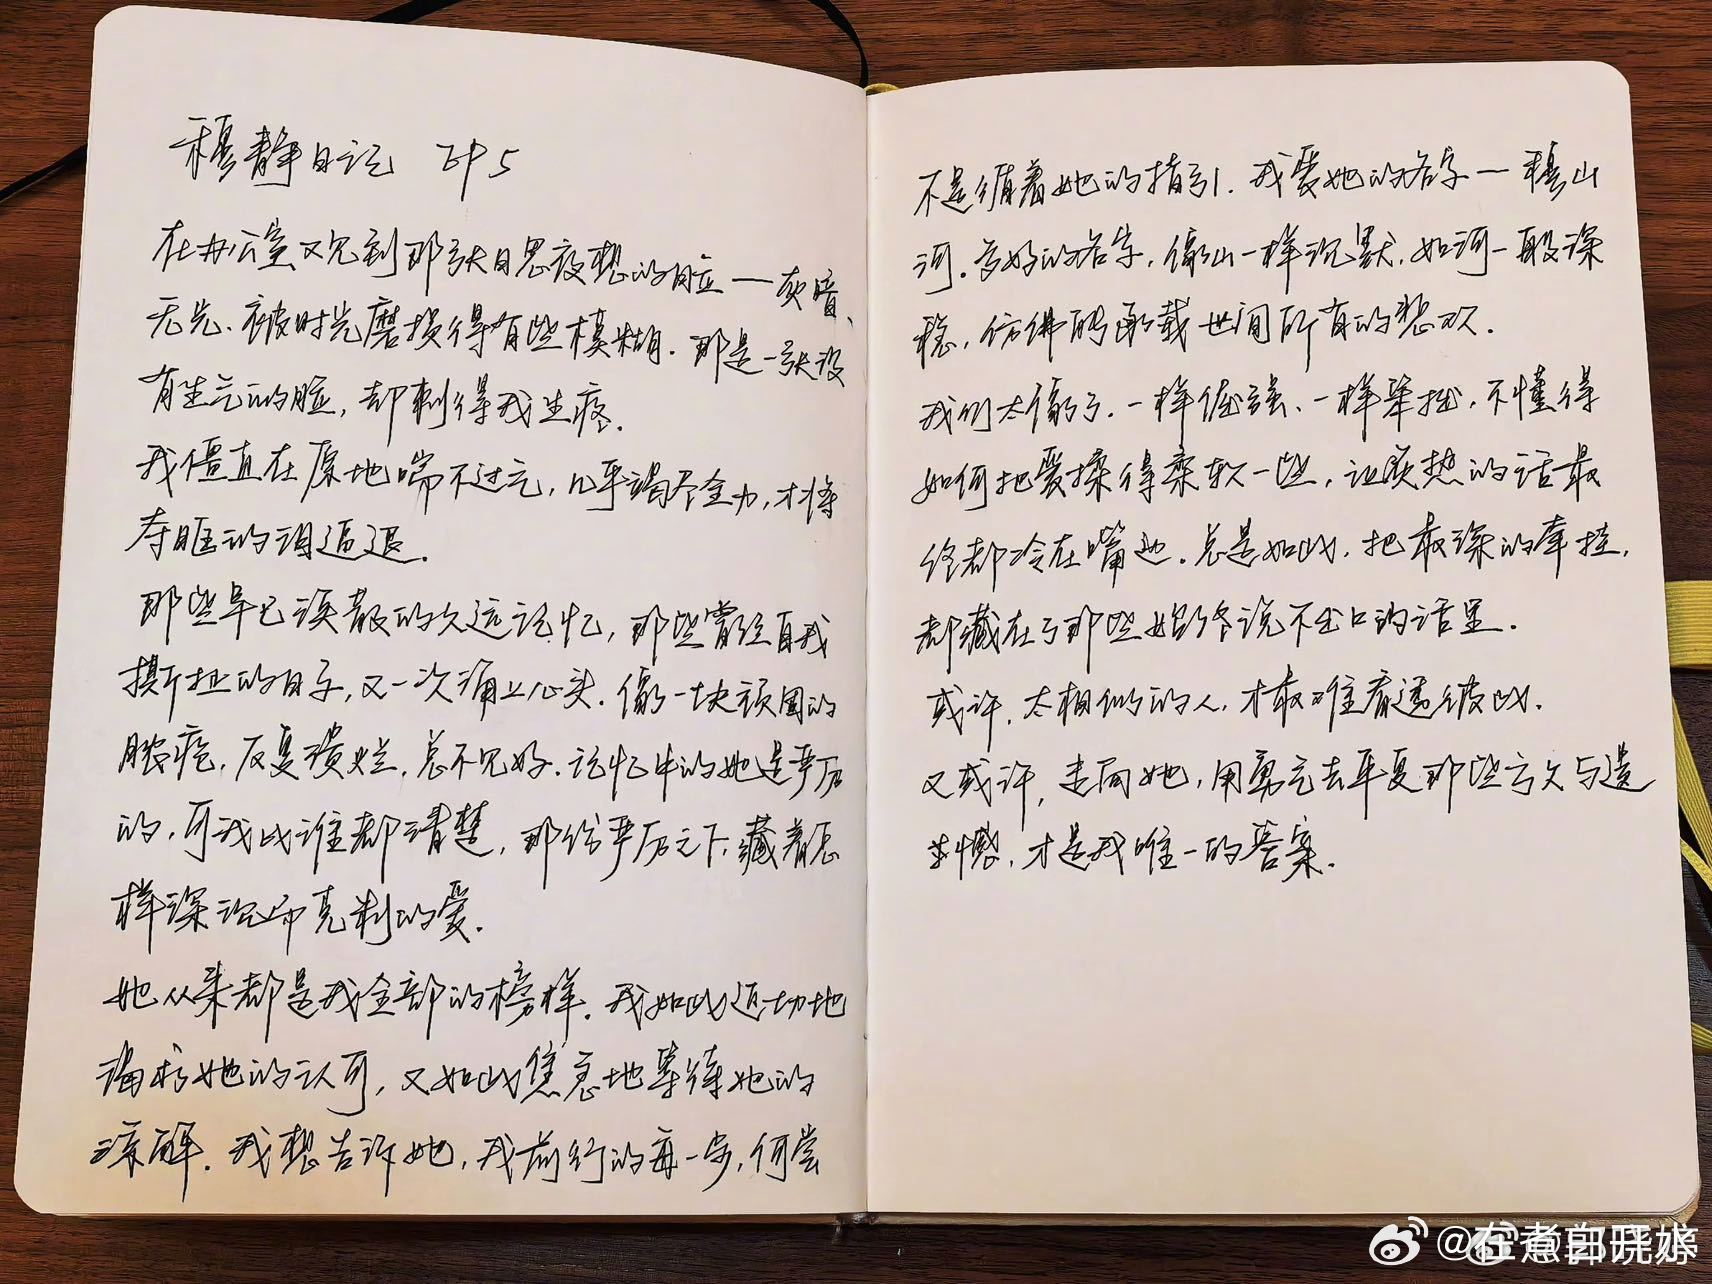 穆静日记 EP 5
在办公室又见到那张日思夜想的脸——灰暗、
无光、被时光磨损得有些模糊. 那是一张没
有生气的脸, 却刺得我生疼.
我僵直在原地喘不过气, 几乎竭尽全力, 才将
夺眶的泪逼退.
那些早已涣散的久远记忆, 那些曾经自我
撕扯的日子, 又一次涌上心头. 像一块顽固的
脓疮, 反复溃烂, 总不见好. 记忆中的她是严厉
的, 可我比谁都清楚, 那份严厉之下, 藏着怎
样深沉而克制的爱.
她从来都是我全部的榜样. 我如此迫切地
渴求她的认可, 又如此焦急地等待她的
谅解. 我想告诉她, 我前行的每一步, 何尝
不是循着她的指引. 我爱她的名字——穆山
河. 多好的名字, 像山一样沉默, 如河一般深
稳, 仿佛能承载世间所有的悲欢.
我们太像了. 一样倔强、一样笨拙, 不懂得
如何把爱揉得柔软一些, 让滚热的话最
终都冷在嘴边. 总是如此, 把最深的牵挂,
都藏在了那些始终说不出口的话里.
或许, 太相似的人, 才最难看透彼此.
又或许, 走向她, 用勇气去平复那些亏欠与遗
憾, 才是我唯一的答案.